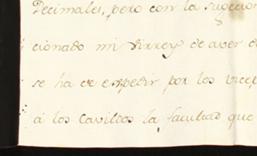 Decimales, pero con la sugecion
cionado mi Virrey de aver de
se ha de expedir por los Vice
á los Cavildos la facultad que